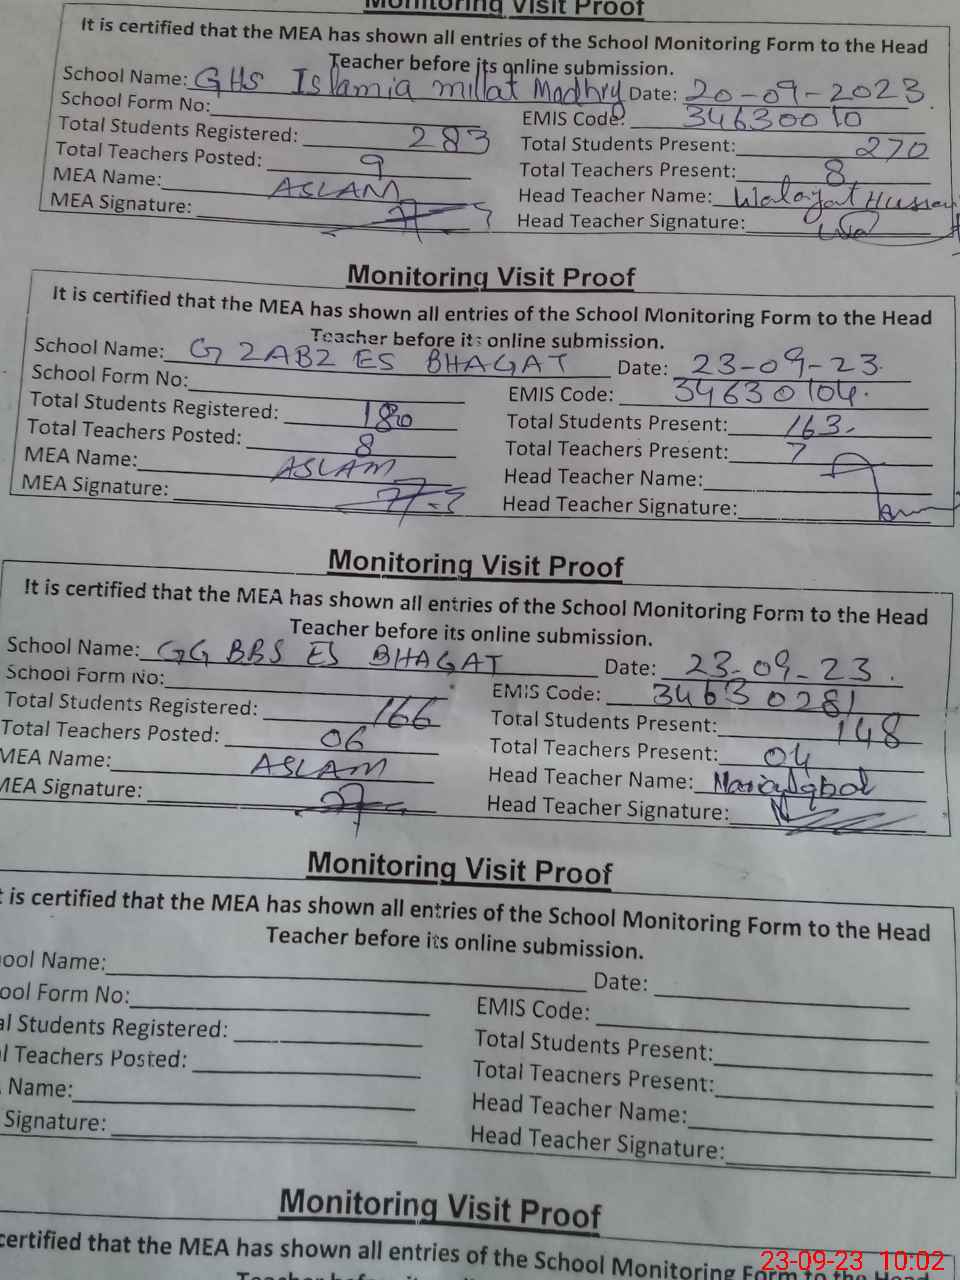 Monitoring Visit Proof
It is certified that the MEA has shown all entries of the School Monitoring Form to the Head
Teacher before its online submission.
School Name: GHS Islamia millat Madhry Date: 20-09-2023.
School Form No: EMIS Code: 34630010
Total Students Registered: 283 Total Students Present: 270
Total Teachers Posted: 9 Total Teachers Present: 8
MEA Name: ASLAM Head Teacher Name: Walayat Hussain
MEA Signature: Head Teacher Signature:
Monitoring Visit Proof
It is certified that the MEA has shown all entries of the School Monitoring Form to the Head
Teacher before its online submission.
School Name: G 2AB2 ES BHAGAT Date: 23-09-23.
School Form No: EMIS Code: 34630104.
Total Students Registered: 180 Total Students Present: 163.
Total Teachers Posted: 8 Total Teachers Present: 7
MEA Name: ASLAM Head Teacher Name:
MEA Signature: Head Teacher Signature:
Monitoring Visit Proof
It is certified that the MEA has shown all entries of the School Monitoring Form to the Head
Teacher before its online submission.
School Name: GG BBS ES BHAGAT Date: 23-09-23.
School Form No: EMIS Code: 34630281
Total Students Registered: 166 Total Students Present: 148
Total Teachers Posted: 06 Total Teachers Present: 04
MEA Name: ASLAM Head Teacher Name: Maria Iqbal
MEA Signature: Head Teacher Signature:
Monitoring Visit Proof
t is certified that the MEA has shown all entries of the School Monitoring Form to the Head
Teacher before its online submission.
ool Name: Date:
ool Form No: EMIS Code:
al Students Registered: Total Students Present:
l Teachers Posted: Total Teachers Present:
Name: Head Teacher Name:
Signature: Head Teacher Signature:
Monitoring Visit Proof
certified that the MEA has shown all entries of the School Monitoring Form to the Head
23-09-23 10:02